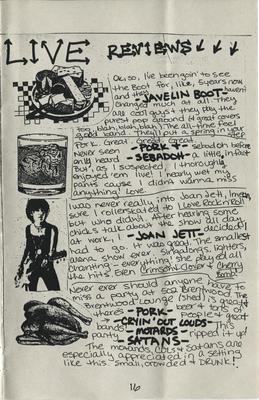 LIVE REVIEWS
Ok, so, I've been goin' to see
the Boot for, like, 5 years now
and they haven't
"JAVELIN BOOT"
changed much at all. They
are cool guys & they play the
purest pop around (& great covers
too, blah, blah, blah). The all-time feel
good band. They'll put a spring in your
Pork. Great. Great. Great.
- PORK - sebadoh before
only heard
- SEBADOH - a little, in fact
But, as I suspected, I thoroughly
enjoyed 'em live! I nearly wet my
pants cause I didn't wanna miss
anything! Love.
I was never really into Joan Jett, I'm
sure I rollerskated to I Love Rock n Roll
but who didn't? After hearing some
chicks talk about the show all day
at work, I decided I
- JOAN JETT -
had to go. It was good. The smallest
arena show ever, spandex, lighters,
chanting - everything! She played all
the hits. Even Crimson & Clover & Cherry
Bomb!
Never ever should anyone have to
miss a party at 502 Brentwood. The
Brentwood Lounge (shed) is great &
there's beer & lots of
- PORK - people & great
bands
- CRYIN' OUT LOUDS - This
party
- MOTARDS - ripped it up!
- SATANS -
The Motards, COL's & Satans are
especially appreciated in a setting
like this - small, crowded & DRUNK!
16